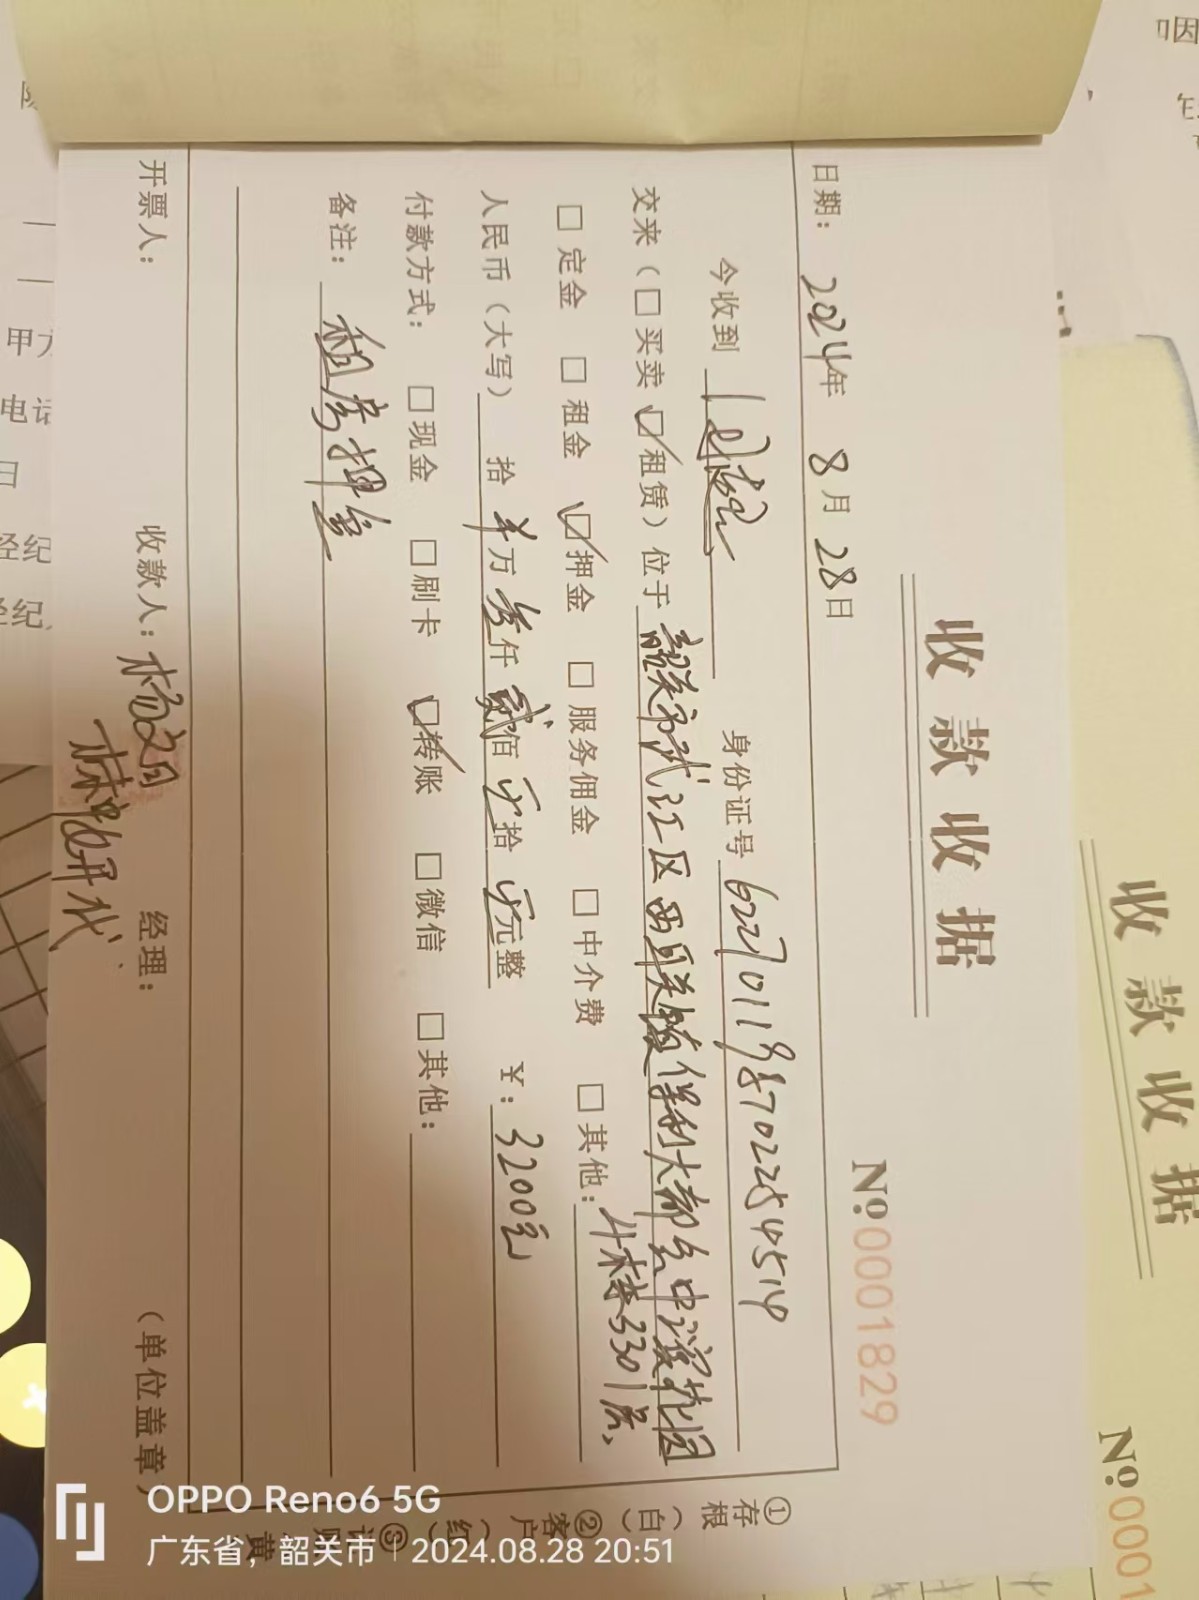 收款收据
No.0001829
日期：2024年 8月 28日
今收到 身份证号 622701198702254514
交来（□买卖 ☑租赁）位于 韶关市武江区西联镇保利大都会中谟花园
□定金 □租金 ☑押金 □服务佣金 □中介费 □其他： 4栋3301房，
人民币（大写） 拾 万 叁仟 贰佰 拾 元整 ¥：3200元
付款方式： □现金 □刷卡 ☑转账 □微信 □其他：
备注： 租房押金
开票人： 收款人：杨 经理： （单位盖章）
代
①存根（白）②客户（红）③记账（黄
收款收据
No.0001
甲方
电话
日
经纪
经纪
OPPO Reno6 5G
广东省，韶关市 | 2024.08.28 20:51